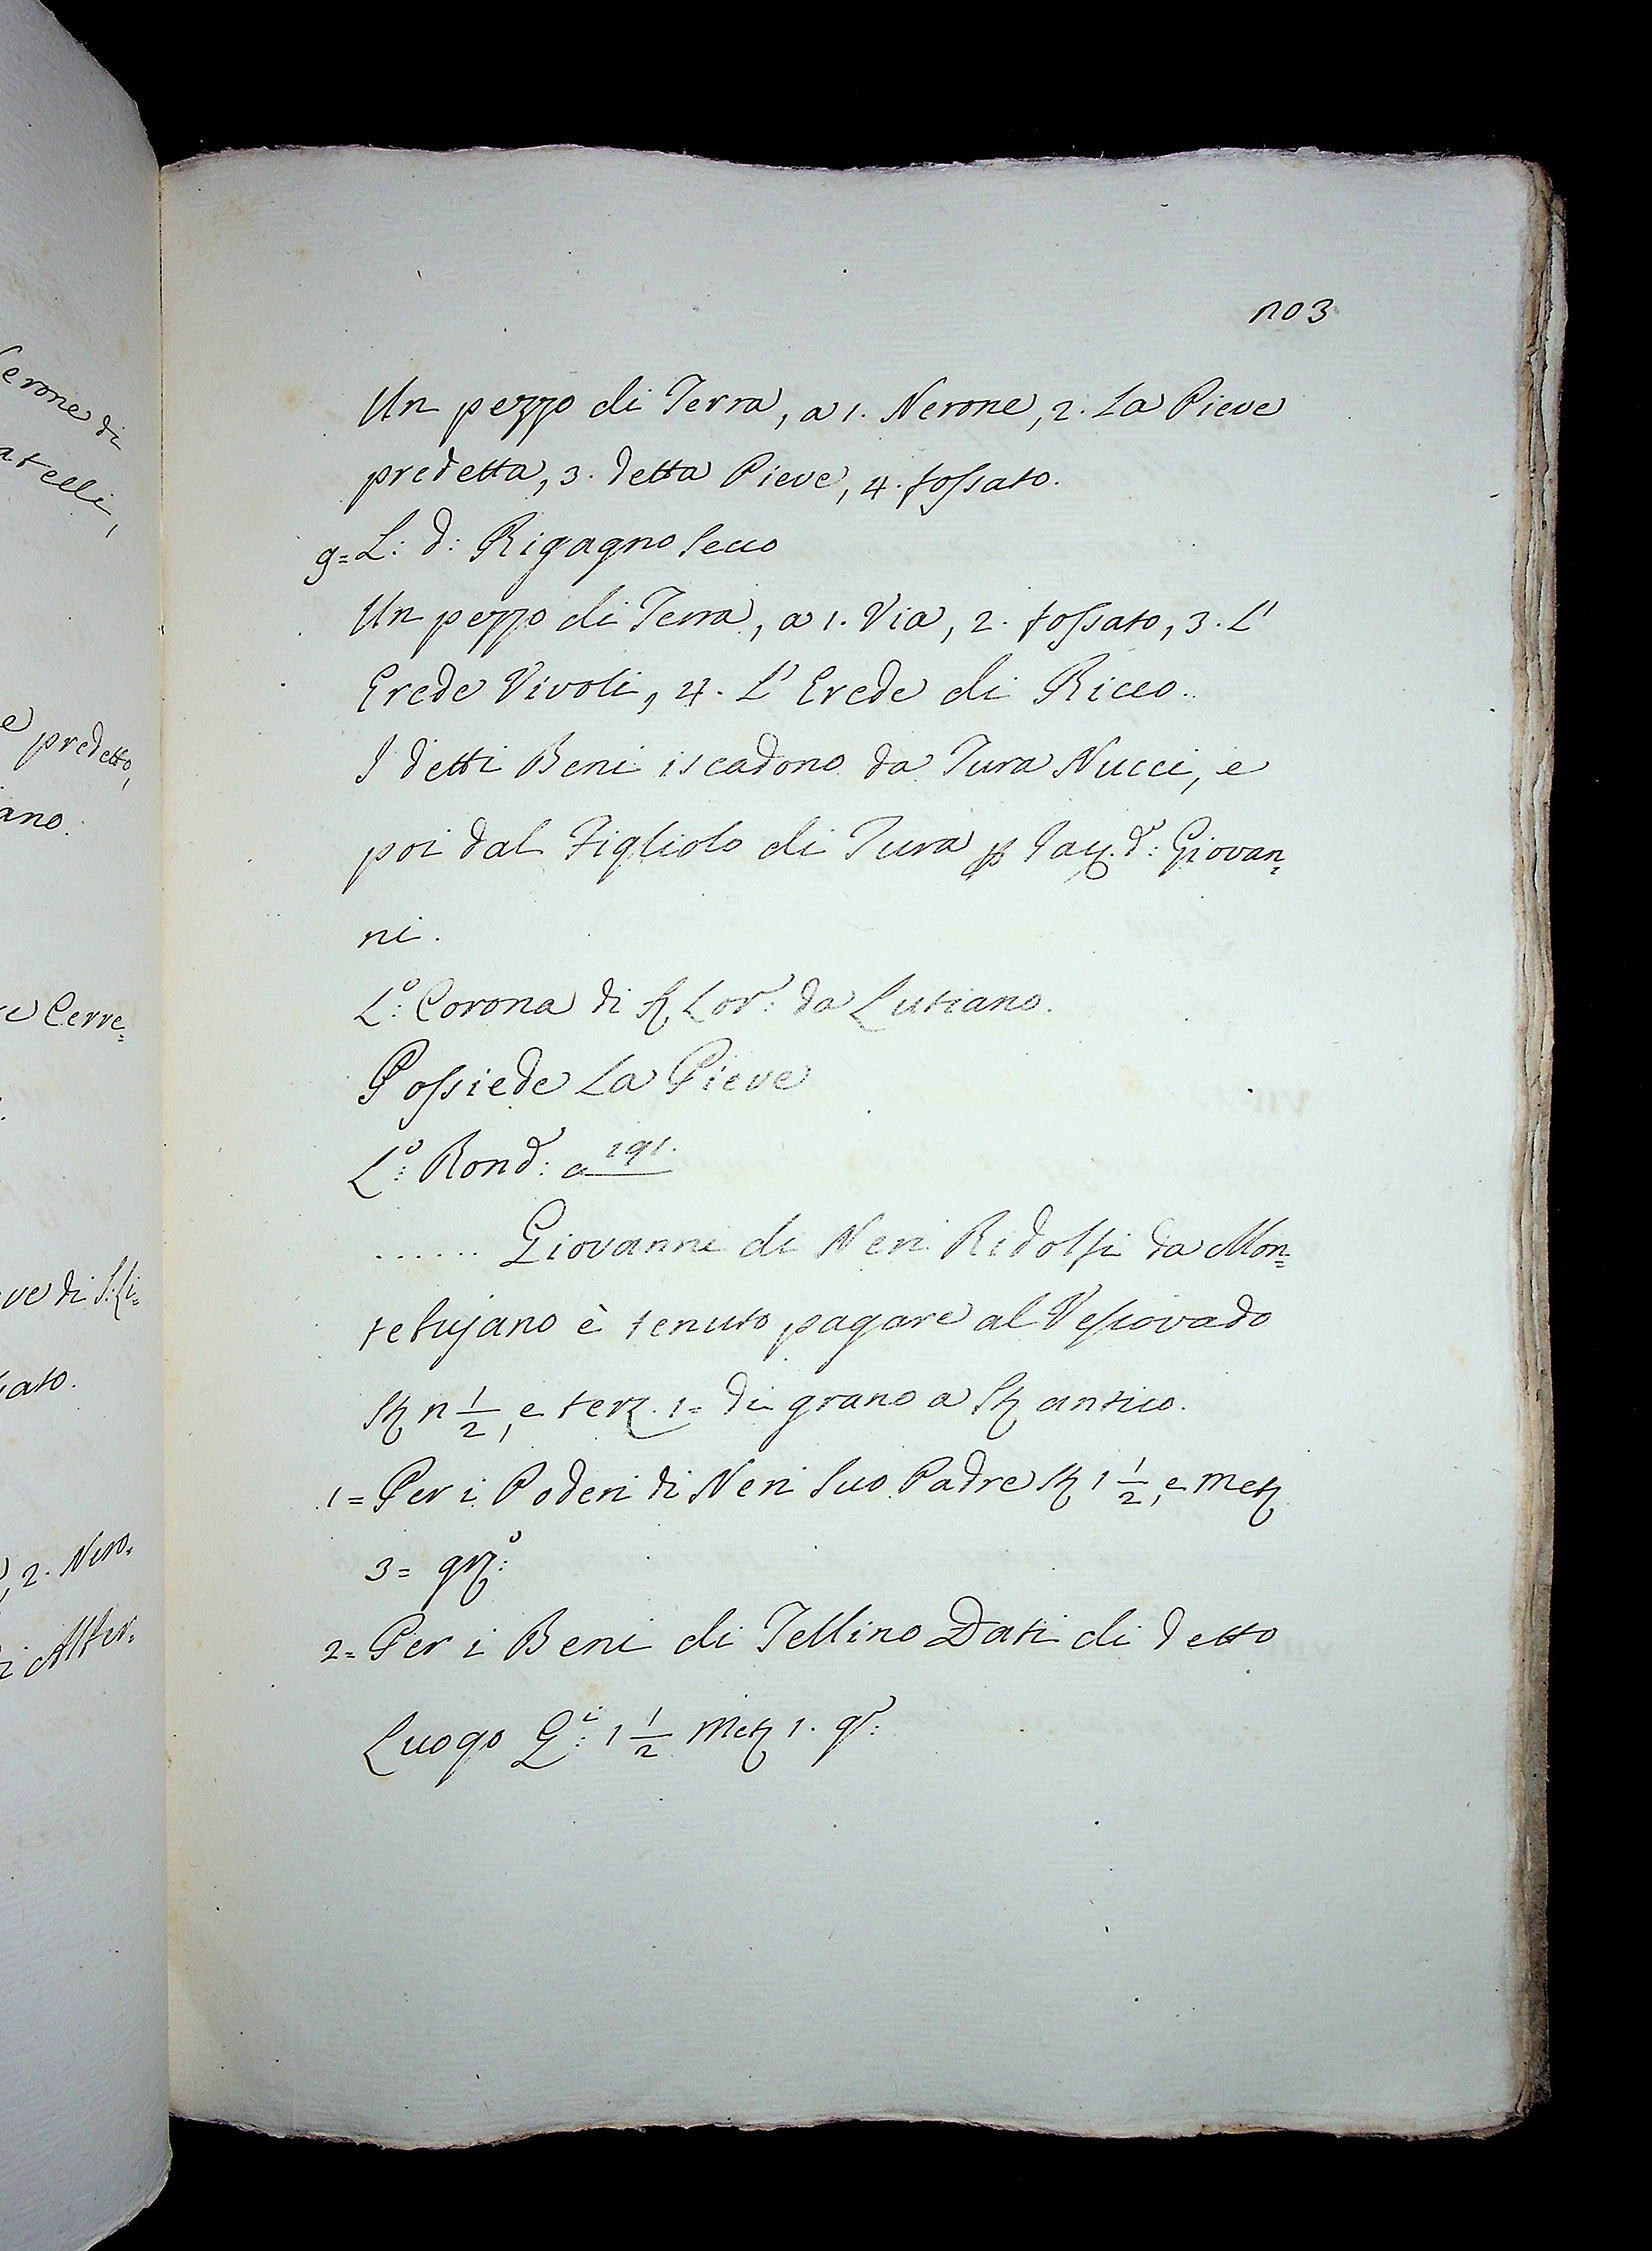 erone di
atelli,
e predetto,
ano.
e Cerre=
ve di S: Li=
ato.
2. Nero=
i Atter=
103
Un pezzo di Terra, a 1. Nerone, 2. La Pieve
predetta, 3. detta Pieve, 4. fossato.
9= L: d: Rigagno secco
Un pezzo di Terra, a 1. Via, 2. fossato, 3. L'
Erede Vivoli, 4. L' Erede di Ricco.
I detti Beni iscadono da Tura Nucci, e
poi dal Figliolo di Tura p d: Giovan=
ni.
L:o Corona di Lor: da Lutiano.
Possiede La Pieve
L:o Rond: a 191.
...... Giovanni di Neri Ridolfi da Mon=
è tenuto pagare al Vescovado
1/2, e di grano a antico.
1= Per i Poderi di Neri suo Padre 1 1/2, e
3=
2= Per i Beni di Tellino Dati di detto
Luogo 1 1/2 1.